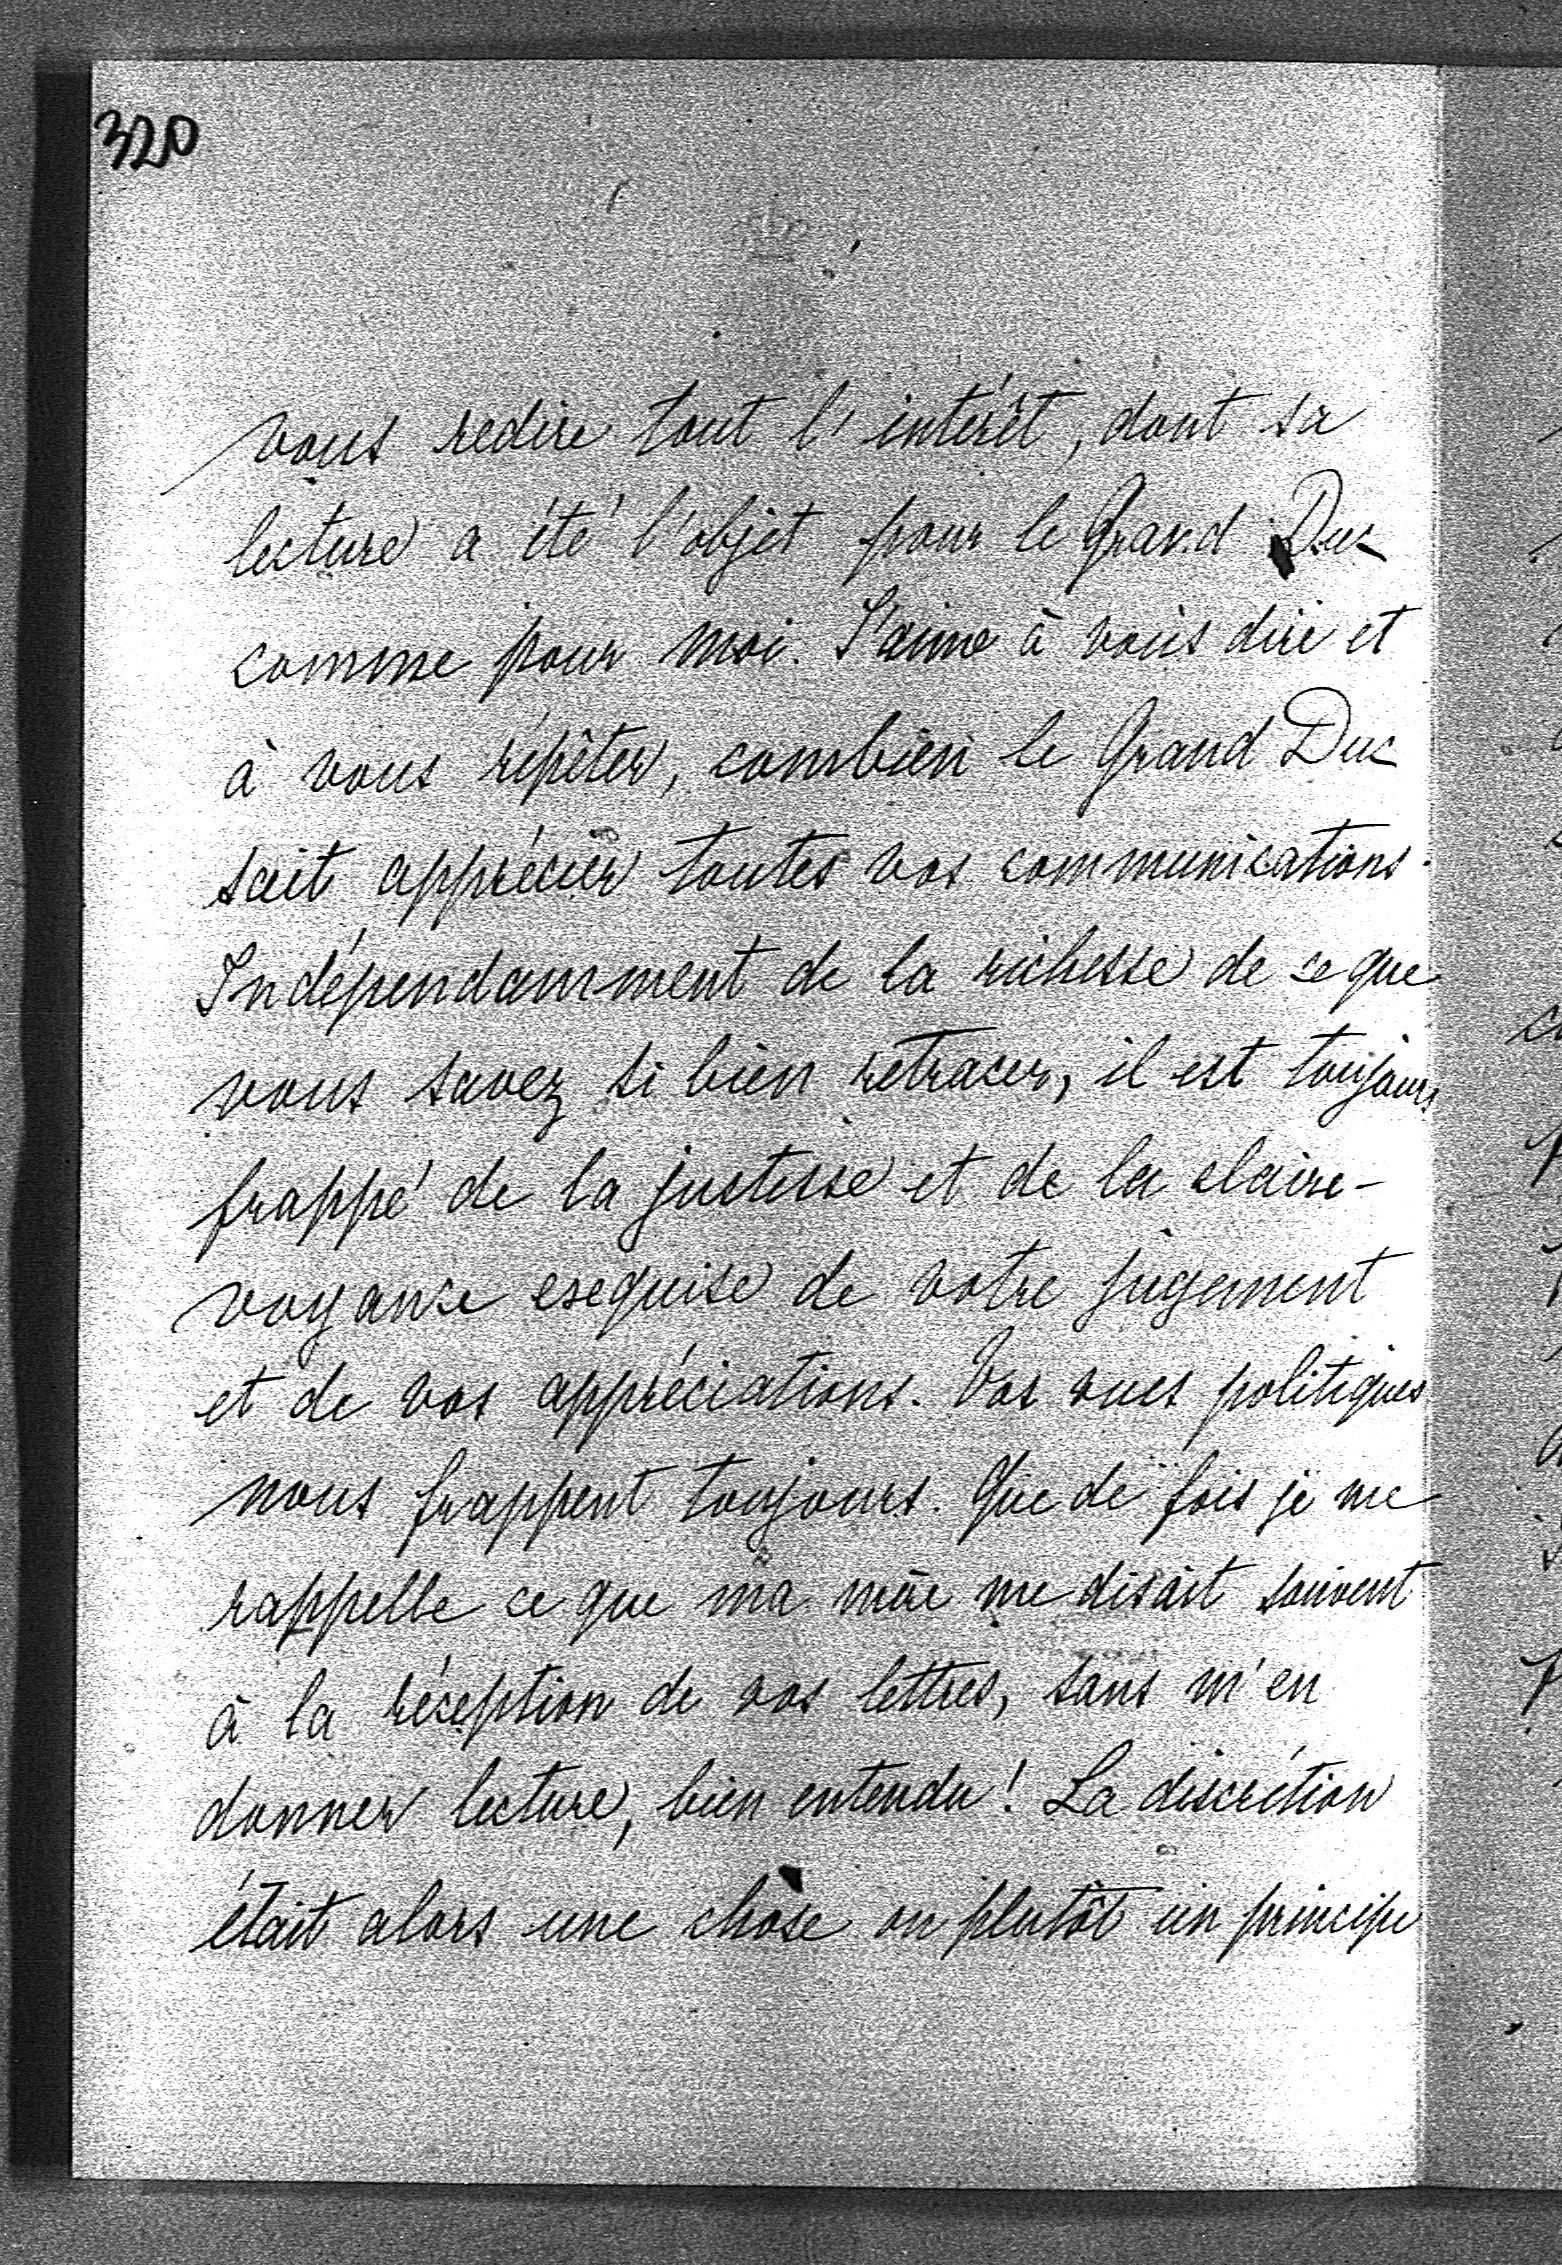 320
vous redire tout l'intérêt, dont sa
lecture a été l'objet pour le Grand Duc
comme pour moi. J'aime à vous dire et
à vous répêter, combien le Grand Duc
sait apprécier toutes vos communications.
Indépendamment de la richesse de ce que
vous savez si bien retracer, il est toujours
frappé de la justesse et de la claire-
voyance exquise de votre jugement
et de vos appréciations. Vos vues politiques
nous frappent toujours. Que de fois je me
rappelle ce que ma mère me disait souvent
à la réception de vos lettres, sans m'en
donner lecture, bien entendu! La discrétion
était alors une chose ou plutôt un principe